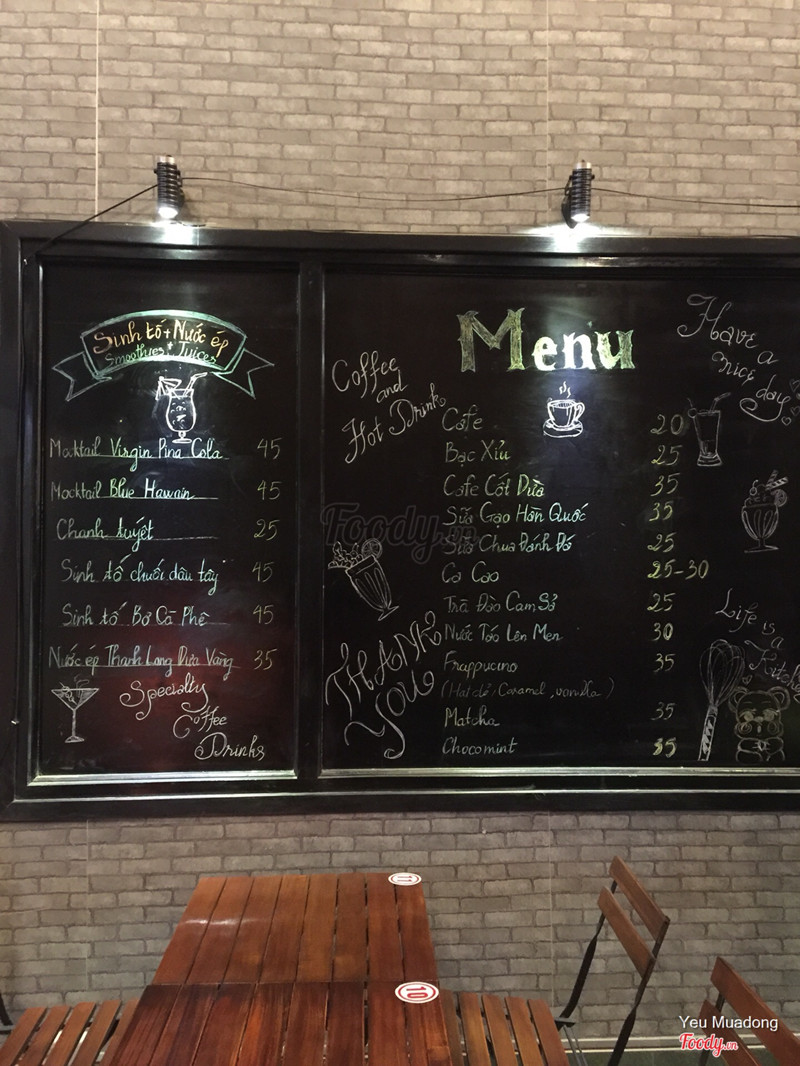 Sinh tố + Nước ép
Smoothies + Juices
Mocktail Virgin Pina Cola 45
Mocktail Blue Hawain 45
Chanh tuyết 25
Sinh tố chuối dâu tây 45
Sinh tố Bơ Cà Phê 45
Nước ép Thanh Long Dưa Vàng 35
Specialty
Coffee
Drinks
Coffee
and
Hot Drink
THANK
YOU
Menu
Cafe 20
Bạc Xỉu 25
Cafe Cốt Dừa 35
Sữa Gạo Hàn Quốc 35
Sữa Chua Đánh Đá 25
Ca Cao 25-30
Trà Đào Cam Sả 25
Nước Táo Lên Men 30
Frappucino 35
(Hạt dẻ, Caramel, vanilla)
Matcha 35
Chocomint 35
Have a
nice day
Life is a
Kitchen
Foody.vn
11
10
Yeu Muadong
Foody.vn